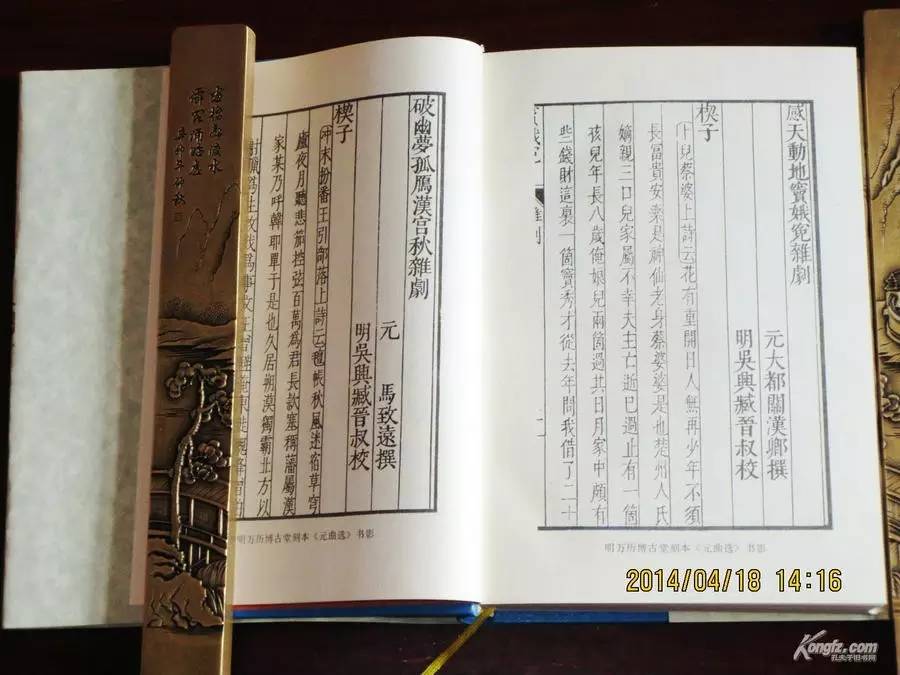 感天動地竇娥冤雜劇
元大都關漢卿撰
明吳興臧晉叔校
楔子
卜兒蔡婆上詩云花有重開日人無再少年不須
長富貴安樂是神仙老身蔡婆婆是也楚州人氏
嫡親三口兒家屬不幸夫主亡逝已過止有一箇
孩兒年長八歲俺娘兒兩箇過其日月家中頗有
些錢財這裏一箇竇秀才從去年問我借了二十
明万历博古堂刻本《元曲选》书影
破幽夢孤鴈漢宮秋雜劇
元 馬致遠撰
明吳興臧晉叔校
楔子
冲末扮番王引部落上詩云氊帳秋風迷宿草穹
廬夜月聽悲笳控弦百萬為君長款塞稱藩屬漢
家某乃呼韓耶單于是也久居朔漠獨霸北方以
明万历博古堂刻本《元曲选》书影
辛卯年仲秋
2014/04/18 14:16
Kongfz.com
孔夫子旧书网